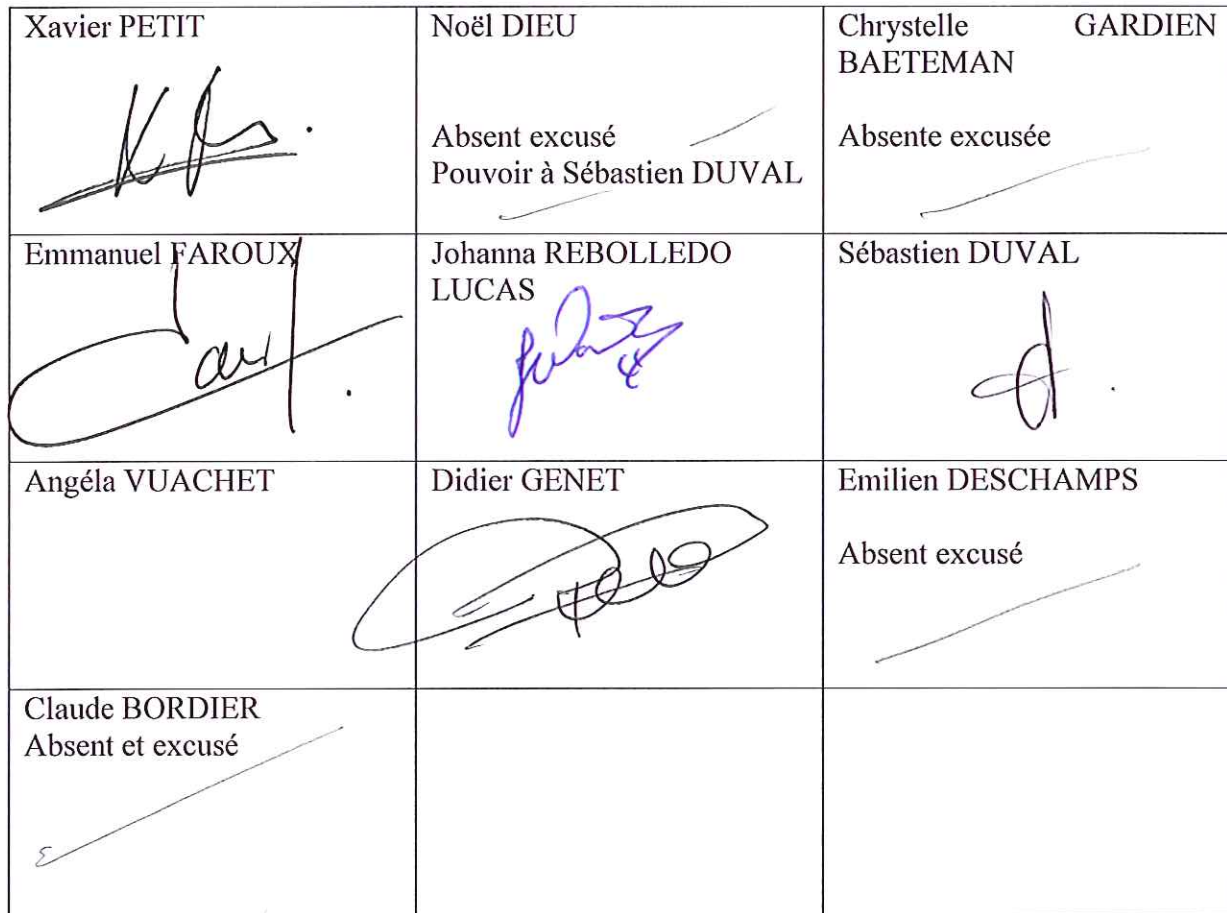 Xavier PETIT
Noël DIEU
Absent excusé
Pouvoir à Sébastien DUVAL
Chrystelle GARDIEN
BAETEMAN
Absente excusée
Emmanuel FAROUX
Johanna REBOLLEDO
LUCAS
Sébastien DUVAL
Angéla VUACHET
Didier GENET
Emilien DESCHAMPS
Absent excusé
Claude BORDIER
Absent et excusé